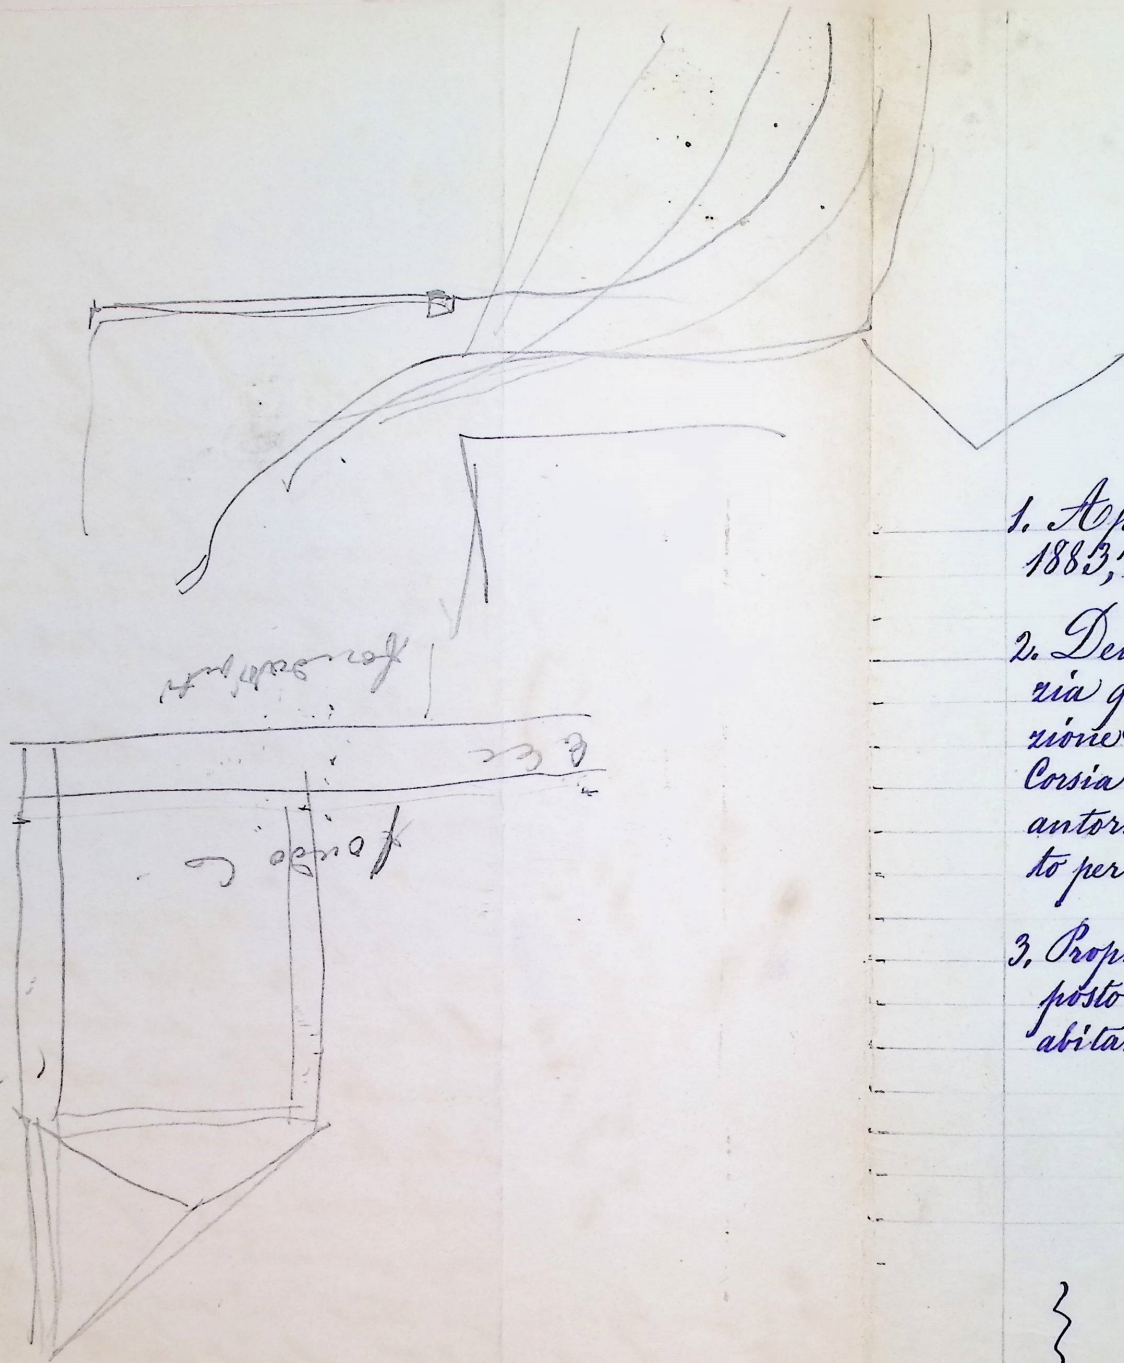 1. Ap
1883,
2. Der
zia g
zione
Corsia
antor
to per
3. Prop
posto
abita
fondo C